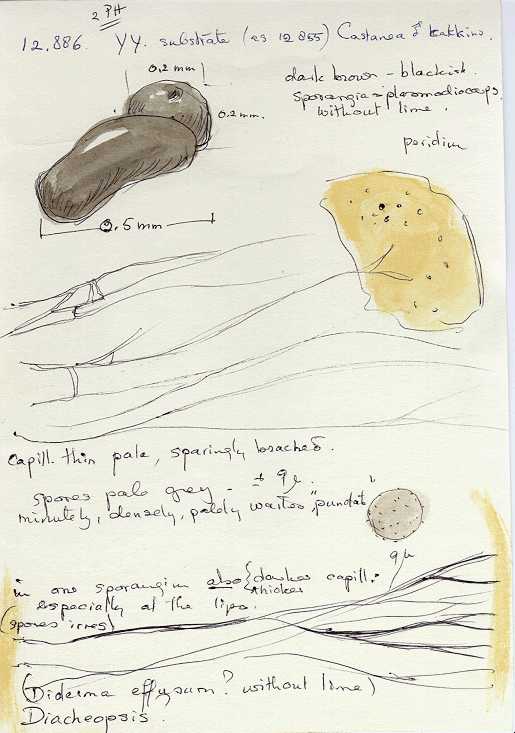 2 PH
12.886. YY. substrate (as 12855) Castanea
dark brown - blackish.
sporangia - plasmodiocarps
without lime.
0.2 mm
0.2 mm.
peridium
0.5 mm
Capill. thin pale, sparingly brached.
spores pale grey - ± 9 µ.
minutely, densely, palely wartes, "punctate"
9 µ
in one sporangium also { darker capill.
thicker
especially at the tips.
(spores irreg)
(Diderma effusum? without lime)
Diacheopsis.